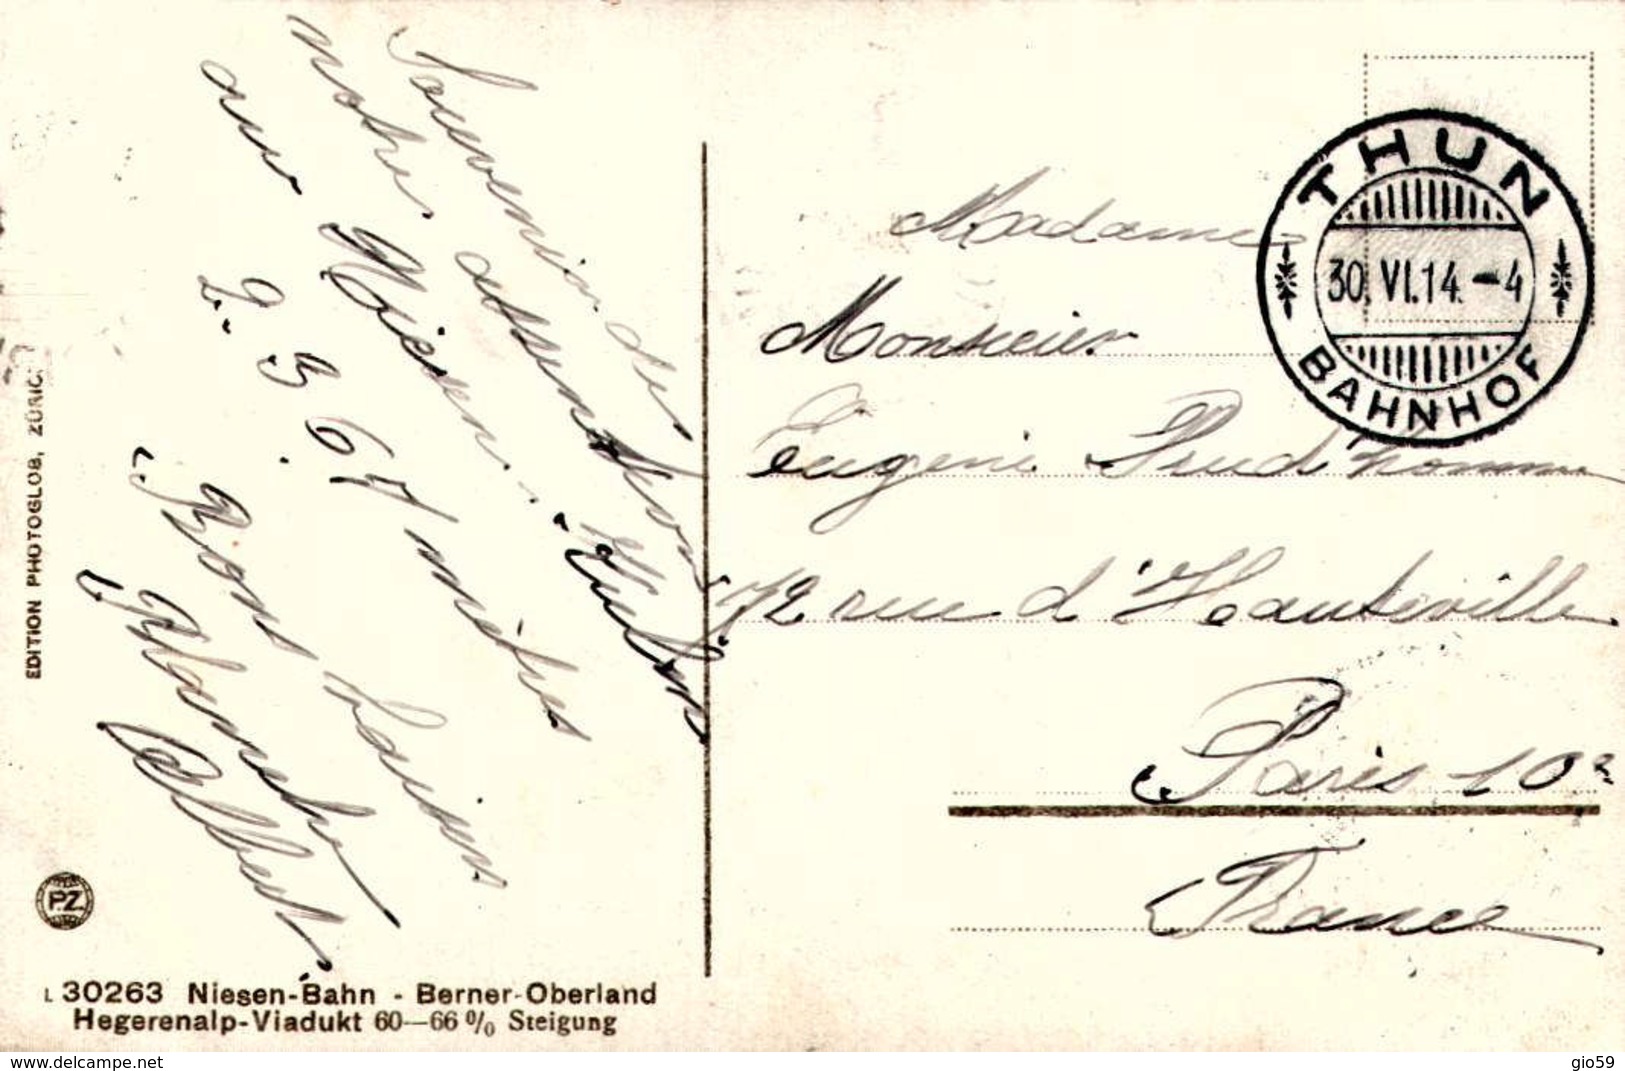 Souvenir de
notre ascension
au Niesen.
2.367 mètres
Bons baisers
Blanche
Albert
EDITION PHOTOGLOB, ZÜRIC
P.Z.
L 30263 Niesen-Bahn - Berner-Oberland
Hegerenalp-Viadukt 60—66 % Steigung
THUN
30. VI. 14. -4
BAHNHOF
Madame
Monsieur
Eugène Prud'homme
72 rue d'Hauteville
Paris 10e
France
delcampe.net
gio59